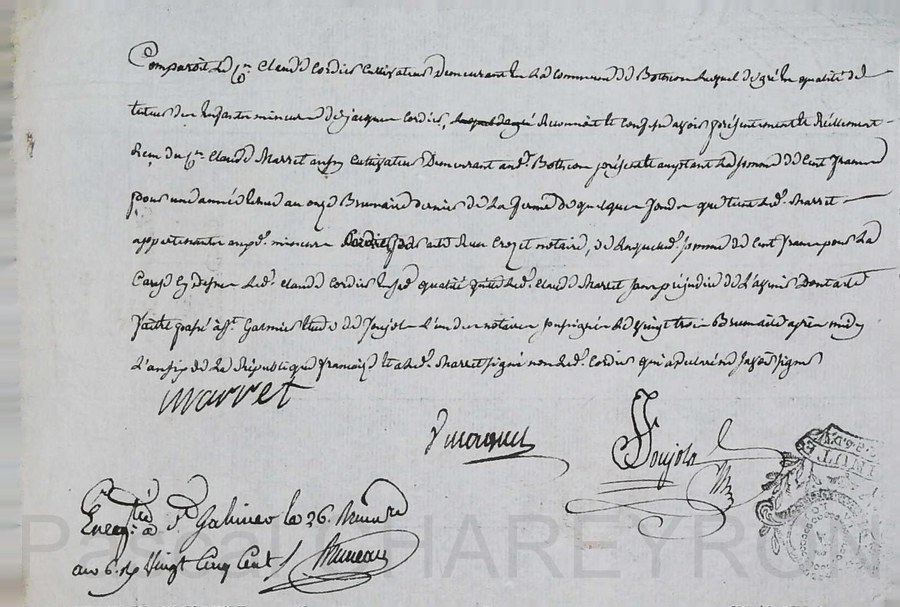 Comparoit le Cn. Claude Cordier Cultivateur demeurant en la Commune de Bothéon lequel de gré en qualité de
tuteur des Enfants mineurs de jacques Cordier, lequel de gré Reconnoit et Confesse avoir présentement et Réellement
Reçu du Cn. Claude Marret aussy Cultivateur demeurant aud. Bothéon présent et acceptant la somme de Cent francs
pour une année Echue au onze Brumaire dernier de La ferme de quelques fonds que tient led. Marret
appartenants auxd. mineurs par acte reçu Crozet notaire, de laquelle d. somme de Cent francs pour La
Cause Cy dessus led. Claude Cordier En sad. qualité quitte led. Claude Marret sans préjudice de L'avenir Dont acte
fait et passé à St. Galmier Etude de Joujols L'un des notaires soussignés le vingt trois Brumaire après midy
L'an six de la République française et a led. Marret signé non led. Cordier qui a déclaré ne savoir signer
marret
Joujols
Enregtré à St. Galmier le 26. Brumaire
an 6. Rçu Vingt Cinq Cent
Bruneau
Pascal CHAREYRON